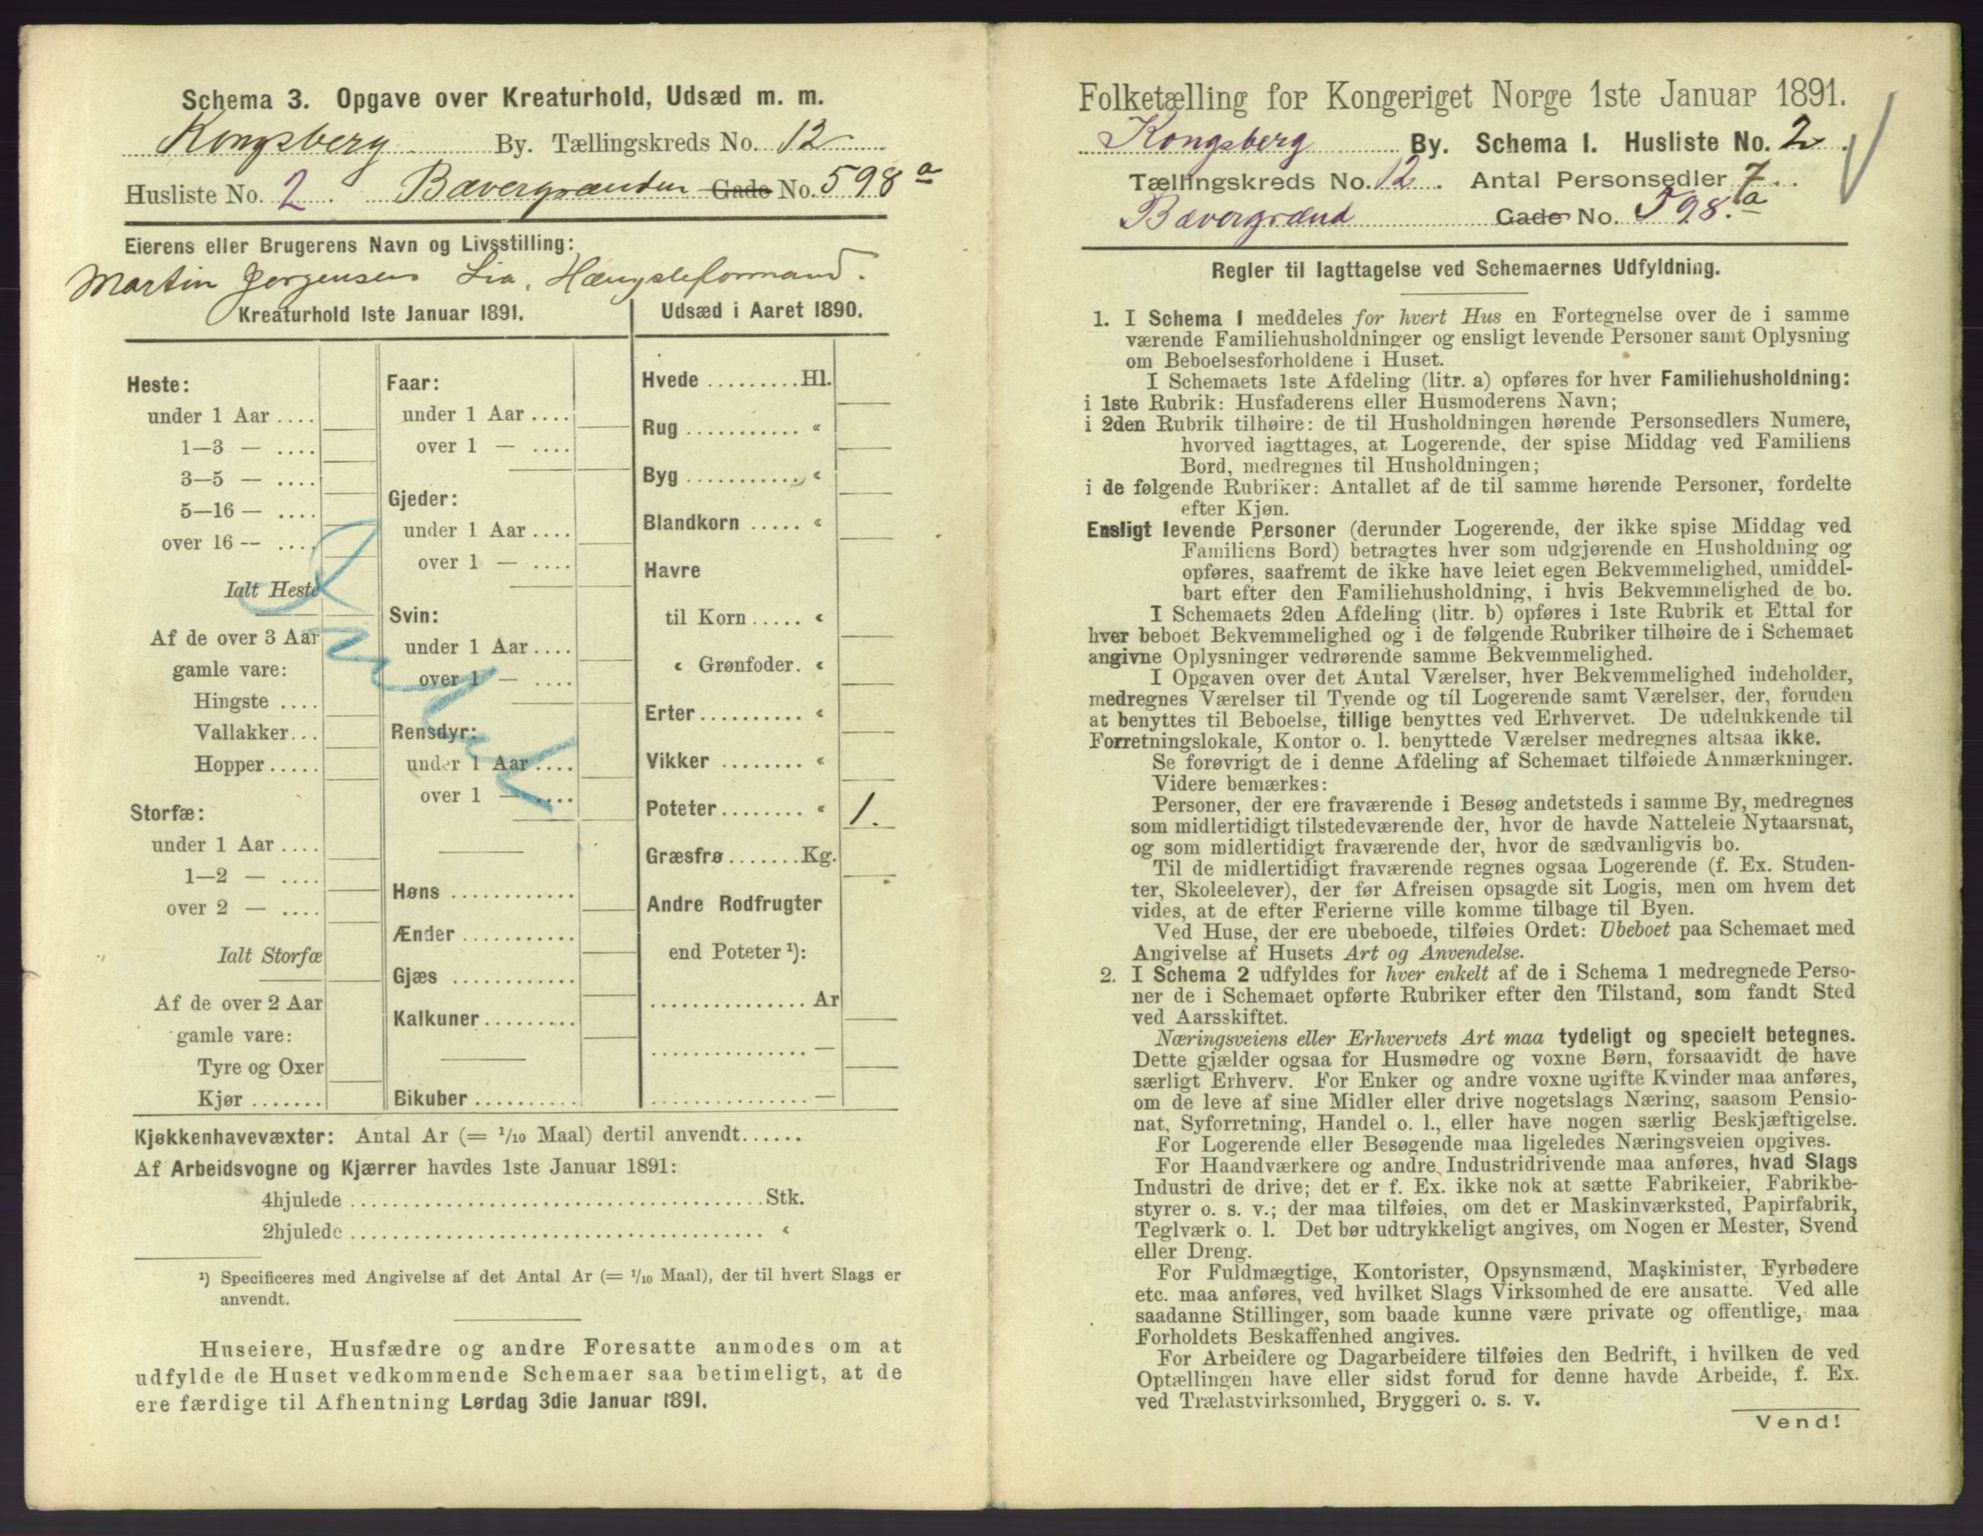 Schema 3. Opgave over Kreaturhold, Udsæd m. m.
Kongsberg By. Tællingskreds No. 12
Husliste No. 2. Bævergrænden Gade No. 598 a
Eierens eller Brugerens Navn og Livsstilling:
Martin Jørgensen Lia, Hængsleformand.
Kreaturhold 1ste Januar 1891.
Heste:
under 1 Aar ....
1—3 — ....
3—5 — ....
5—16 — ....
over 16 — ....
Ialt Heste
Af de over 3 Aar
gamle vare:
Hingste ....
Vallakker...
Hopper.....
Storfæ:
under 1 Aar....
1—2 — ....
over 2 — ....
Ialt Storfæ
Af de over 2 Aar
gamle vare:
Tyre og Oxer
Kjør.......
Faar:
under 1 Aar ....
over 1 — ....
Gjeder:
under 1 Aar ....
over 1 — ....
Svin:
under 1 Aar....
over 1 — ....
Rensdyr:
under 1 Aar....
over 1 — ....
Høns............
Ænder...........
Gjæs............
Kalkuner.........
Bikuber..........
Udsæd i Aaret 1890.
Hvede.........Hl.
Rug........... «
Byg........... «
Blandkorn ..... «
Havre
til Korn..... «
« Grønfoder. «
Erter.......... «
Vikker ........ «
Poteter........ « 1.
Græsfrø.......Kg.
Andre Rodfrugter
end Poteter ¹):
...............Ar
...............—
...............—
Kjøkkenhavevæxter: Antal Ar (= 1/10 Maal) dertil anvendt......
Af Arbeidsvogne og Kjærrer havdes 1ste Januar 1891:
4hjulede ........................................Stk.
2hjulede ........................................ «
¹) Specificeres med Angivelse af det Antal Ar (= 1/10 Maal), der til hvert Slags er
anvendt.
Huseiere, Husfædre og andre Foresatte anmodes om at
udfylde de Huset vedkommende Schemaer saa betimeligt, at de
ere færdige til Afhentning Lørdag 3die Januar 1891.
Folketælling for Kongeriget Norge 1ste Januar 1891.
Kongsberg By. Schema I. Husliste No. 2.
Tællingskreds No. 12. Antal Personsedler 7.
Bævergrænd Gade No. 598. a
Regler til Iagttagelse ved Schemaernes Udfyldning.
1. I Schema I meddeles for hvert Hus en Fortegnelse over de i samme
værende Familiehusholdninger og ensligt levende Personer samt Oplysning
om Beboelsesforholdene i Huset.
I Schemaets 1ste Afdeling (litr. a) opføres for hver Familiehusholdning:
i 1ste Rubrik: Husfaderens eller Husmoderens Navn;
i 2den Rubrik tilhøire: de til Husholdningen hørende Personsedlers Numere,
hvorved iagttages, at Logerende, der spise Middag ved Familiens
Bord, medregnes til Husholdningen;
i de følgende Rubriker: Antallet af de til samme hørende Personer, fordelte
efter Kjøn.
Ensligt levende Personer (derunder Logerende, der ikke spise Middag ved
Familiens Bord) betragtes hver som udgjørende en Husholdning og
opføres, saafremt de ikke have leiet egen Bekvemmelighed, umiddel-
bart efter den Familiehusholdning, i hvis Bekvemmelighed de bo.
I Schemaets 2den Afdeling (litr. b) opføres i 1ste Rubrik et Ettal for
hver beboet Bekvemmelighed og i de følgende Rubriker tilhøire de i Schemaet
angivne Oplysninger vedrørende samme Bekvemmelighed.
I Opgaven over det Antal Værelser, hver Bekvemmelighed indeholder,
medregnes Værelser til Tyende og til Logerende samt Værelser, der, foruden
at benyttes til Beboelse, tillige benyttes ved Erhvervet. De udelukkende til
Forretningslokale, Kontor o. l. benyttede Værelser medregnes altsaa ikke.
Se forøvrigt de i denne Afdeling af Schemaet tilføiede Anmærkninger.
Videre bemærkes:
Personer, der ere fraværende i Besøg andetsteds i samme By, medregnes
som midlertidigt tilstedeværende der, hvor de havde Natteleie Nytaarsnat,
og som midlertidigt fraværende der, hvor de sædvanligvis bo.
Til de midlertidigt fraværende regnes ogsaa Logerende (f. Ex. Studen-
ter, Skoleelever), der før Afreisen opsagde sit Logis, men om hvem det
vides, at de efter Ferierne ville komme tilbage til Byen.
Ved Huse, der ere ubeboede, tilføies Ordet: Ubeboet paa Schemaet med
Angivelse af Husets Art og Anvendelse.
2. I Schema 2 udfyldes for hver enkelt af de i Schema 1 medregnede Perso-
ner de i Schemaet opførte Rubriker efter den Tilstand, som fandt Sted
ved Aarsskiftet.
Næringsveiens eller Erhvervets Art maa tydeligt og specielt betegnes.
Dette gjælder ogsaa for Husmødre og voxne Børn, forsaavidt de have
særligt Erhverv. For Enker og andre voxne ugifte Kvinder maa anføres,
om de leve af sine Midler eller drive nogetslags Næring, saasom Pensio-
nat, Syforretning, Handel o. l., eller have nogen særlig Beskjæftigelse.
For Logerende eller Besøgende maa ligeledes Næringsveien opgives.
For Haandværkere og andre Industridrivende maa anføres, hvad Slags
Industri de drive; det er f. Ex. ikke nok at sætte Fabrikeier, Fabrikbe-
styrer o. s. v.; der maa tilføies, om det er Maskinværksted, Papirfabrik,
Teglværk o. l. Det bør udtrykkeligt angives, om Nogen er Mester, Svend
eller Dreng.
For Fuldmægtige, Kontorister, Opsynsmænd, Maskinister, Fyrbødere
etc. maa anføres, ved hvilket Slags Virksomhed de ere ansatte. Ved alle
saadanne Stillinger, som baade kunne være private og offentlige, maa
Forholdets Beskaffenhed angives.
For Arbeidere og Dagarbeidere tilføies den Bedrift, i hvilken de ved
Optællingen have eller sidst forud for denne havde Arbeide, f. Ex.
ved Trælastvirksomhed, Bryggeri o. s. v.
Vend!